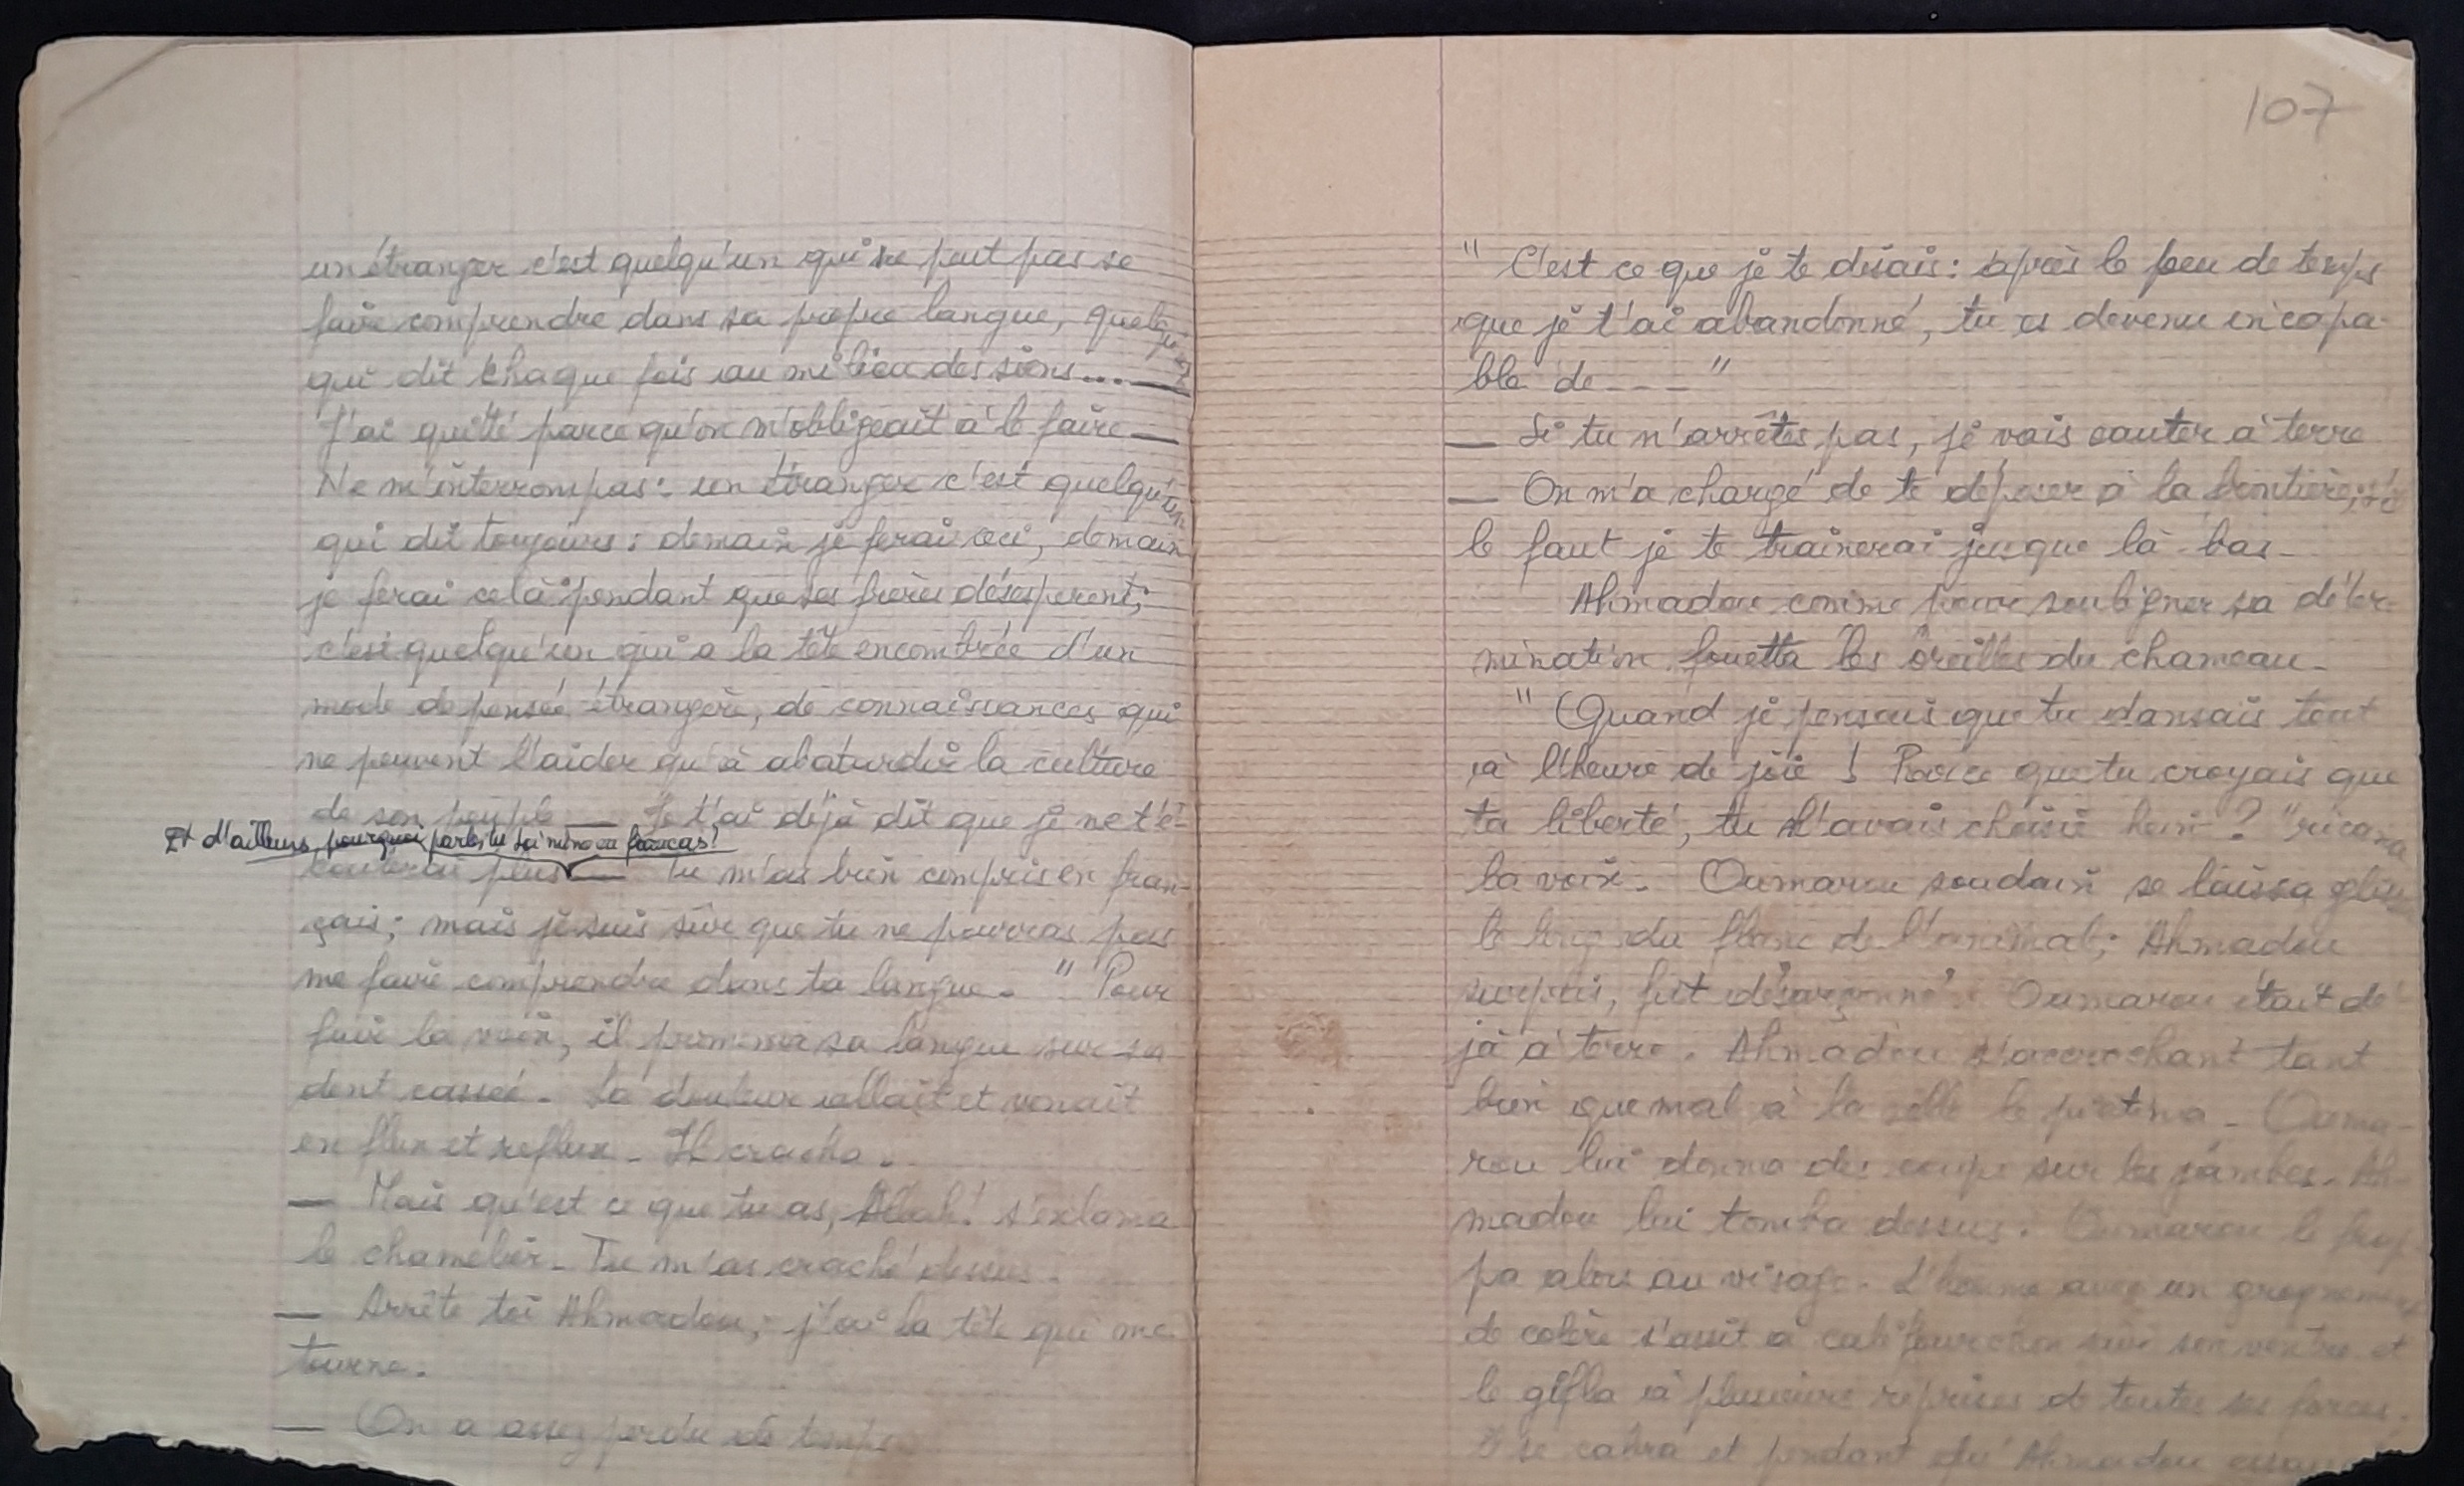 un étranger c'est quelqu'un qui ne peut pas se
faire comprendre dans sa propre langue, quelqu'un
qui dit chaque fois au milieu des siens... —
J'ai quitté parce qu'on m'obligeait à le faire —
Ne m'interrompas: un étranger c'est quelqu'un
qui dit toujours: demain je ferai ceci, demain
je ferai cela pendant que ses frères désesperent;
c'est quelqu'un qui a la tête encombrée d'un
mode de pensée étrangère, de connaissances qui
ne peuvent l'aider qu'à abaturdir la culture
de son peuple — Je t'ai déjà dit que je ne t'é-
Et d'ailleurs, pourquoi parles tu toi même en francas!
couterai plus — Tu m'as bien compris en fran-
çais; mais je suis sûr que tu ne pourras pas
me faire comprendre dans ta langue. " Pour
fuir la voix, il promena sa langue sur sa
dent cassée. La douleur allait et venait
en flux et reflux. Il cracha.
— Mais qu'est ce que tu as, Allah! s'exclama
le chamelier. Tu m'as craché dessus.
— Arrête toi Ahmadou; j'ai la tête qui me
tourne.
— On a assez perdu de temps
107
" C'est ce que je te disais: après le peu de temps
que je t'ai abandonné, tu es devenu incapa-
ble de - - - "
— Si tu n'arrêtes pas, je vais sauter à terre
— On m'a chargé de te déposer à la frontière; s'il
le faut je te trainerai jusque là-bas.
Ahmadou comme pour souligner sa déter-
mination fouetta les oreilles du chameau.
" Quand je pensais que tu dansais tout
à l'heure de joie ! Parce que tu croyais que
ta liberté, tu l'avais choisie hein ? " ricana
la voix. Oumarou soudain se laissa glisser
le long du flanc de l'animal; Ahmadou
surpris, fut désarçonné. Oumarou était dé-
jà à terre. Ahmadou s'accrochant tant
bien que mal à la selle le piétina. Ouma-
rou lui donna des coups sur les jambes. Ah-
madou lui tomba dessus. Oumarou le frap-
pa alors au visage. L'homme avec un grognement
de colère s'assit à califourchon sur son ventre et
le gifla à plusieurs reprises de toutes ses forces.
Il se cabra et pendant qu'Ahmadou